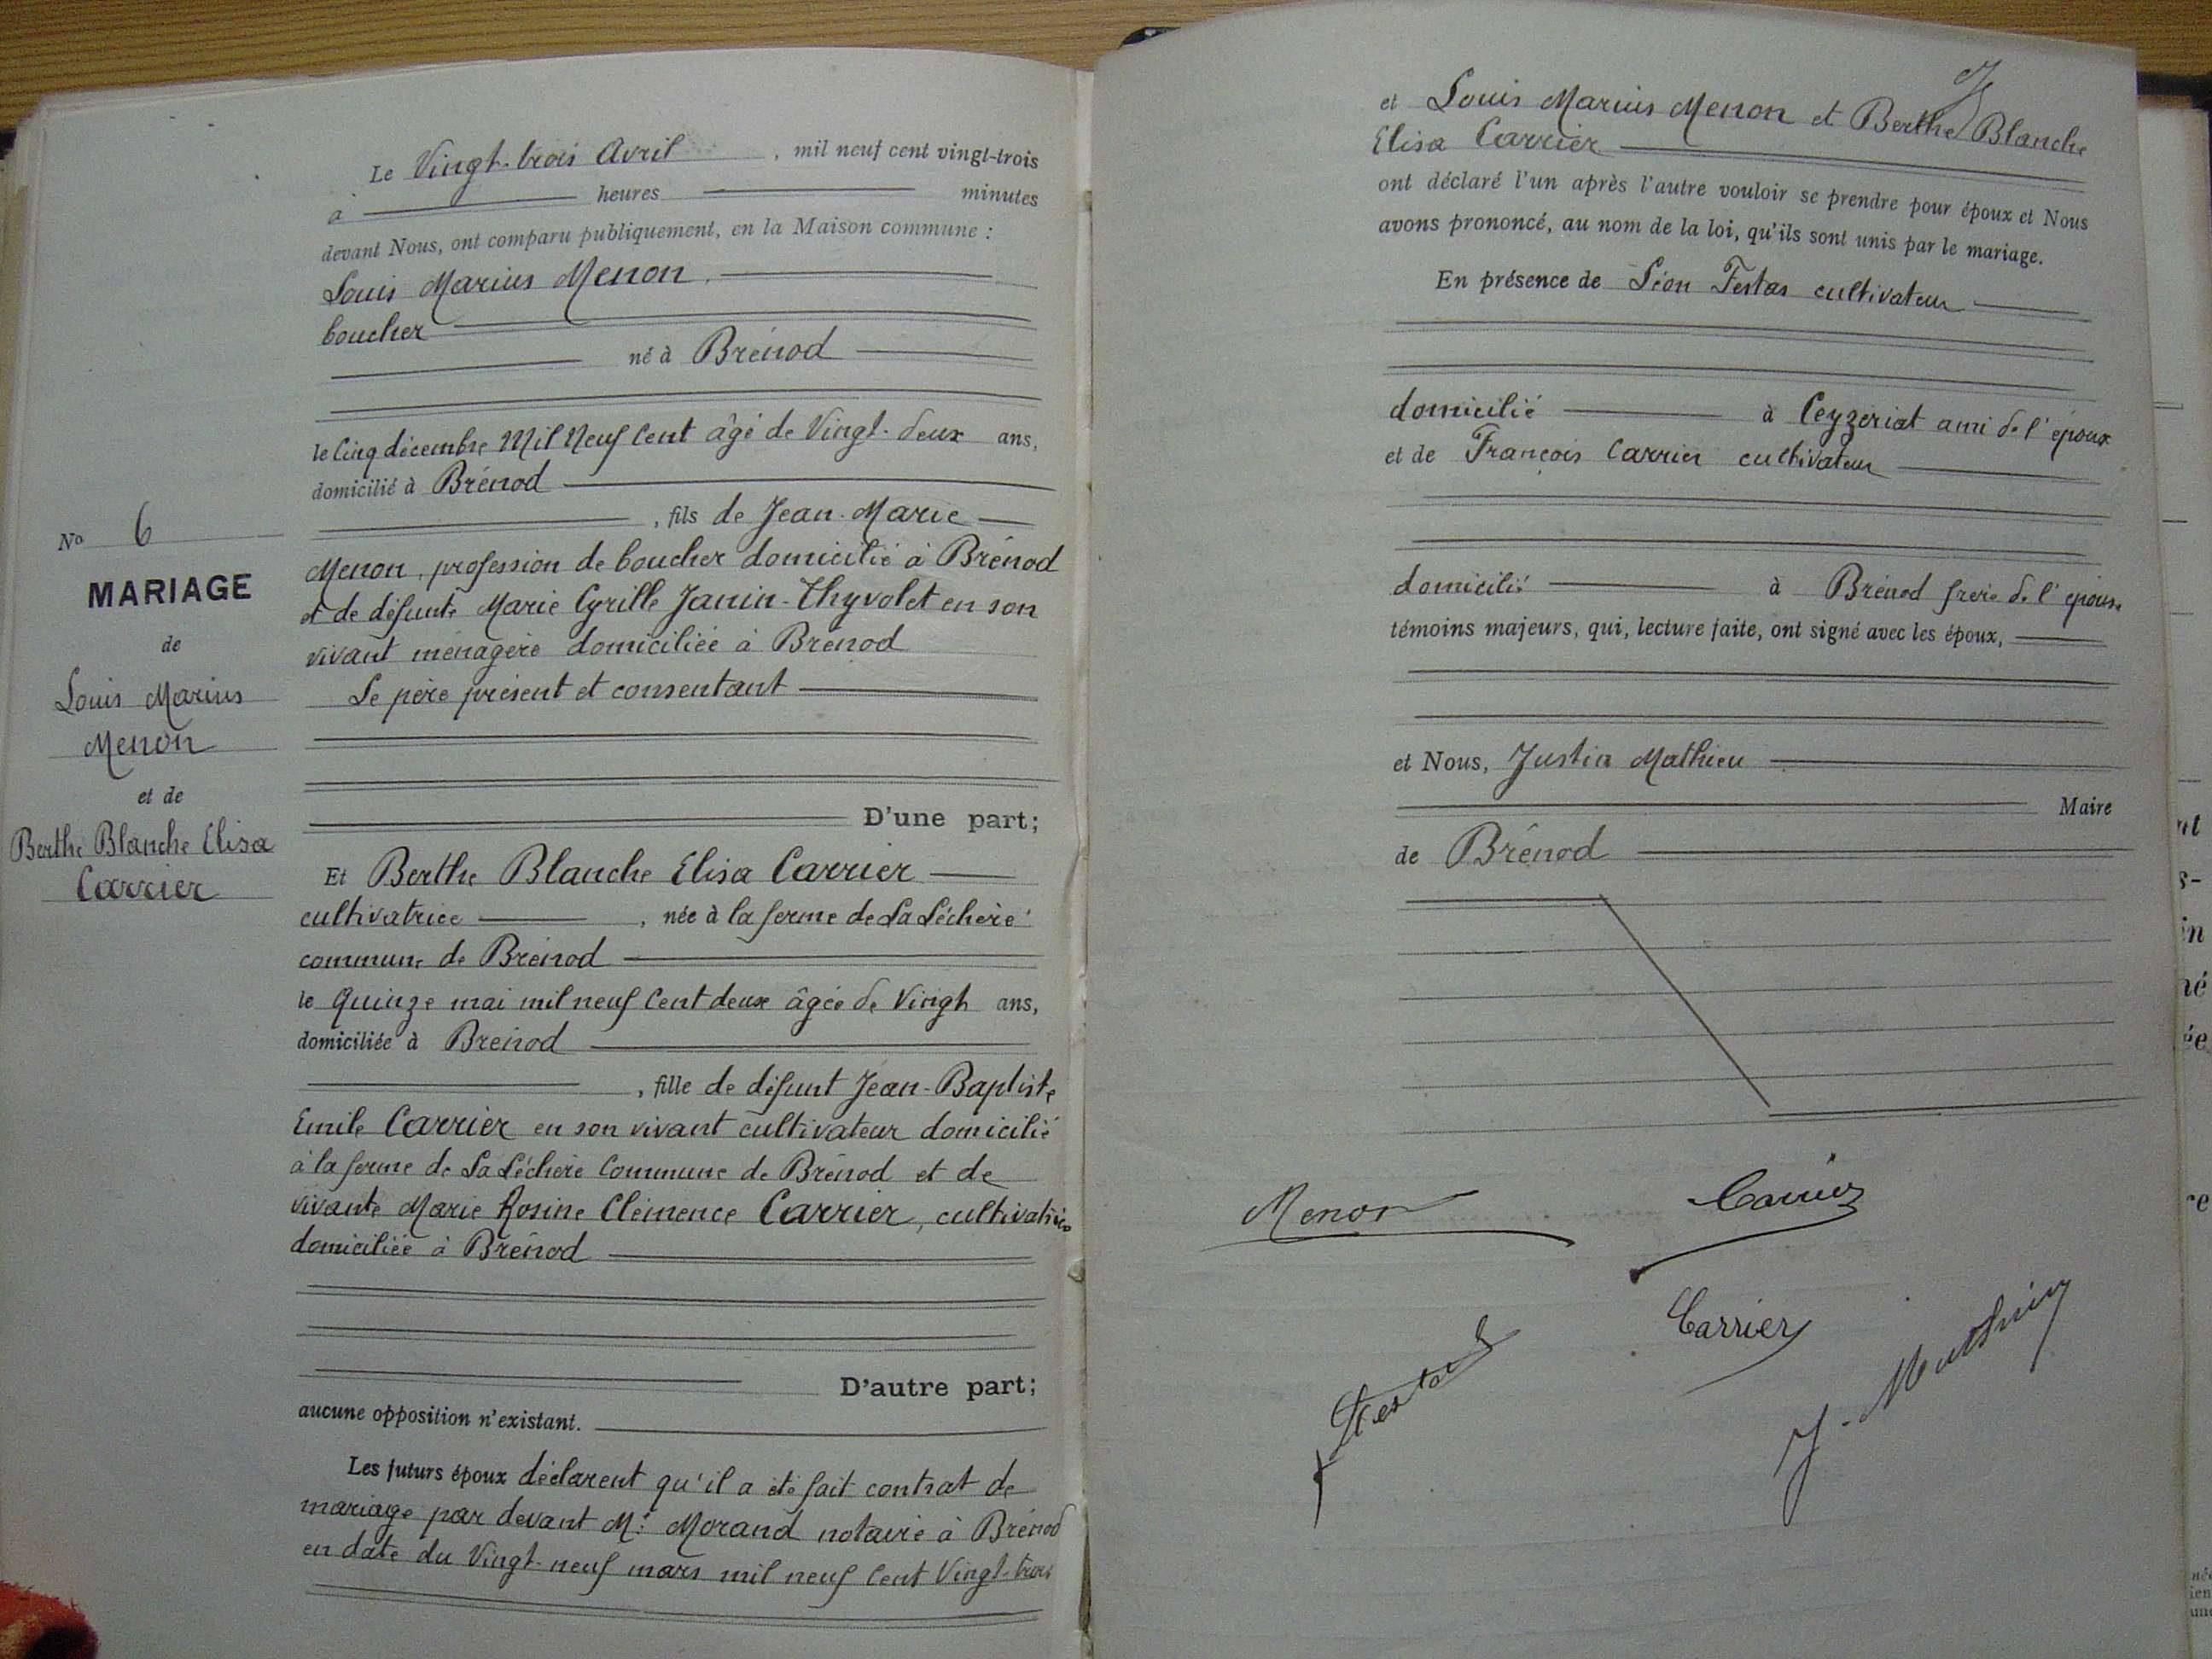 Le Vingt-trois Avril, mil neuf cent vingt-trois
à heures minutes
devant Nous, ont comparu publiquement, en la Maison commune :
Louis Marius Menon
boucher
né à Brénod
le Cinq décembre Mil Neuf Cent âgé de Vingt-deux ans,
domicilié à Brénod
, fils de Jean-Marie
Menon, profession de boucher domicilié à Brénod
et de défunte Marie Cyrille Janin-Thyvolet en son
vivant ménagère domiciliée à Brénod
Le père présent et consentant
D'une part;
Et Berthe Blanche Elisa Carrier
cultivatrice, née à la ferme de La Léchère
commune de Brénod
le Quinze mai mil neuf Cent deux âgée de Vingt ans,
domiciliée à Brénod
, fille de défunt Jean-Baptiste
Emile Carrier en son vivant cultivateur domicilié
à la ferme de La Léchère Commune de Brénod et de
vivante Marie Rosine Clémence Carrier, cultivatrice
domiciliée à Brénod
D'autre part;
aucune opposition n'existant.
Les futurs époux déclarent qu'il a été fait contrat de
mariage par devant Me Morand notaire à Brénod
en date du Vingt-neuf mars mil neuf Cent Vingt-trois
No 6
MARIAGE
de
Louis Marius
Menon
et de
Berthe Blanche Elisa
Carrier
et Louis Marius Menon et Berthe Blanche
Elisa Carrier
ont déclaré l'un après l'autre vouloir se prendre pour époux et Nous
avons prononcé, au nom de la loi, qu'ils sont unis par le mariage.
En présence de Léon Festas cultivateur
domicilié à Ceyzeriat ami de l'époux
et de François Carrier cultivateur
domicilié à Brénod frère de l'épouse
témoins majeurs, qui, lecture faite, ont signé avec les époux,
et Nous, Justin Mathieu
Maire
de Brénod
Menon
Carrier
Carrier
J. Mathieu